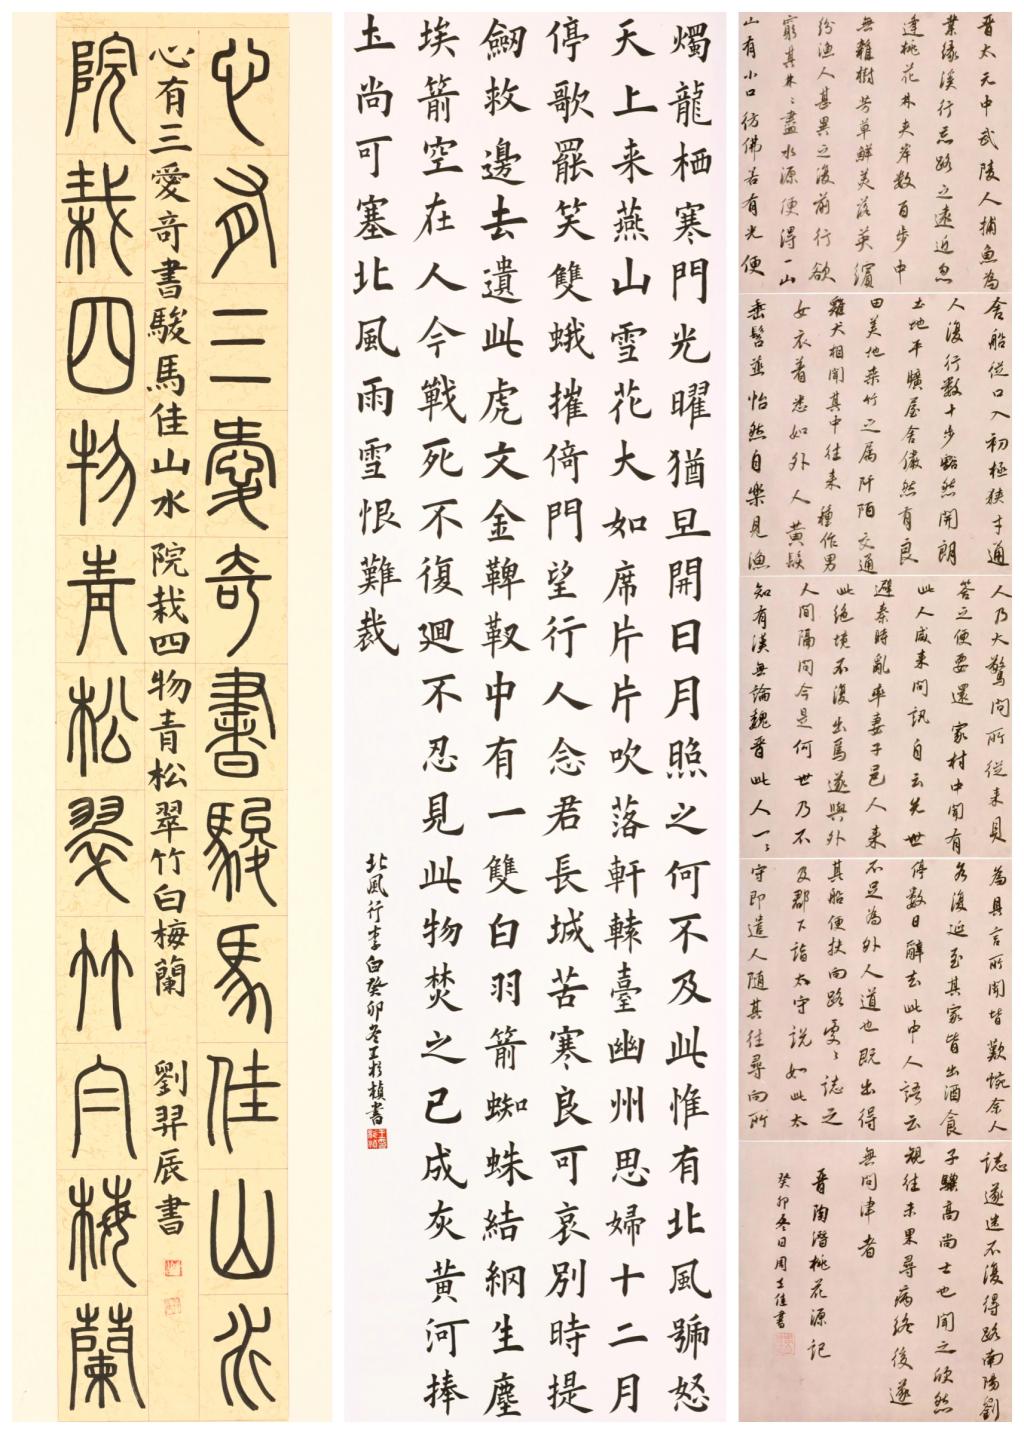 心有三愛奇書駿馬佳山水
心有三愛奇書駿馬佳山水 院栽四物青松翠竹白梅蘭 劉羿辰書
院栽四物青松翠竹白梅蘭
燭龍栖寒門光曜猶旦開日月照之何不及此惟有北風號怒
天上来燕山雪花大如席片片吹落軒轅臺幽州思婦十二月
停歌罷笑雙蛾摧倚門望行人念君長城苦寒良可哀別時提
劒救邊去遺此虎文金鞞靫中有一雙白羽箭蜘蛛結網生塵
埃箭空在人今戰死不復迴不忍見此物焚之已成灰黃河捧
土尚可塞北風雨雪恨難裁
北風行李白癸卯冬王杉楨書
晉太元中武陵人捕魚為
業緣溪行忘路之遠近忽
逢桃花林夹岸数百步中
無雜樹芳草鮮美落英繽
纷漁人甚異之復前行欲
窮其林林盡水源便得一山
山有小口彷佛若有光便
舍船從口入初極狹才通
人復行数十步豁然開朗
土地平曠屋舍儼然有良
田美池桑竹之属阡陌交通
雞犬相聞其中往来種作男
女衣着悉如外人黃髮
垂髫並怡然自樂見漁
人乃大驚問所從来具
答之便要還家村中聞有
此人咸来問訊自云先世
避秦時亂率妻子邑人来
此絶境不復出焉遂與外
人間隔問今是何世乃不
知有漢無論魏晉此人一一
為具言所聞皆歎惋余人
各復延至其家皆出酒食
停数日辭去此中人語云
不足為外人道也既出得
其船便扶向路處處誌之
及郡下詣太守說如此太
守即遣人隨其往尋向所
誌遂迷不復得路南陽劉
子驥高尚士也聞之欣然
規往未果尋病終後遂
無問津者
晉陶潛桃花源記
癸卯冬日周佳書